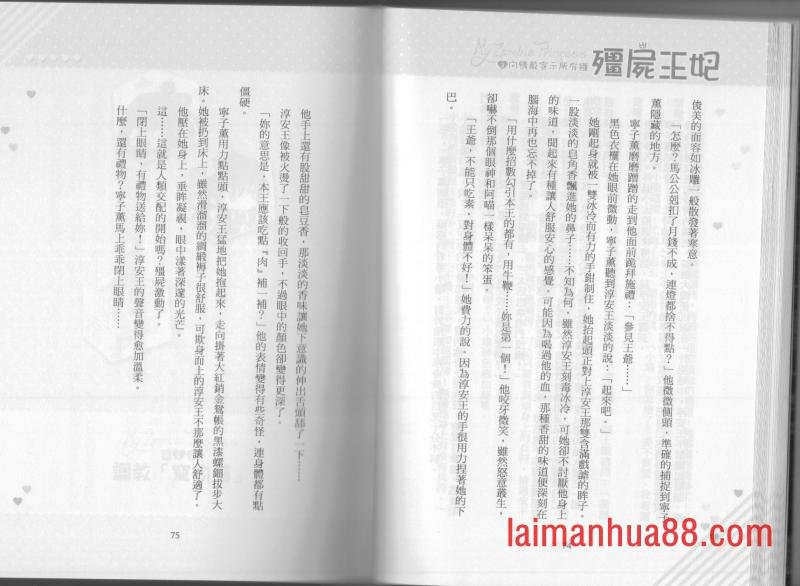 My Zombie Princess
3向情敵宣示所有權
殭屍王妃
俊美的面容如冰雕一般散發著寒意。
「怎麼?馬公公剋扣了月錢不成,連燈都捨不得點?」他微微側頭,準確的捕捉到寧子
薰隱藏的地方。
寧子薰磨磨蹭蹭的走到他面前跪拜施禮:「參見王爺……」
黑色衣襬在她眼前微動,寧子薰聽到淳安王淡淡的說:「起來吧。」
她剛起身就被一雙冰冷而有力的手鉗制住,她抬起頭正對上淳安王那雙含滿戲謔的眸子。
一股淡淡的皂角香飄進她的鼻子……不知為何,雖然淳安王刻毒冰冷,可她卻不討厭他身上
的味道,聞起來有種讓人舒服安心的感覺。可能因為喝過他的血,那種香甜的味道便深刻在
腦海中再也忘不掉了。
「用什麼招數勾引本王的都有,用牛鞭……妳是第一個!」他咬牙微笑,雖然怒意叢生,
卻嚇不倒那個眼神和阿喵一樣呆呆的笨蛋。
「王爺,不能只吃素,對身體不好!」她費力的說。因為淳安王的手很用力捏著她的下
巴。
74
他手上還有股甜甜的皂豆香,那淡淡的香味讓她下意識的伸出舌頭舔了一下……
淳安王像被火燙了一下般的收回手,不過眼中的顏色卻變得更深了。
「妳的意思是,本王應該吃點『肉』補一補?」他的表情變得有些奇怪,連身體都有點
僵硬。
寧子薰用力點點頭,淳安王猛地把她抱起來,走向掛著大紅銷金鴛帳的黑漆螺鈿拔步大
床。她被扔到床上,雖然滑溜溜的綢緞褥子很舒服,可欺身而上的淳安王不那麼讓人舒適了。
他壓在她身上,垂眸凝視,眼中漾著深邃的光芒。
這……這就是人類交配的開始嗎?殭屍激動了。
「閉上眼睛,有禮物送給妳!」淳安王的聲音變得愈加溫柔。
什麼,還有禮物?寧子薰馬上乖乖閉上眼睛……
75
laimanhua88.com